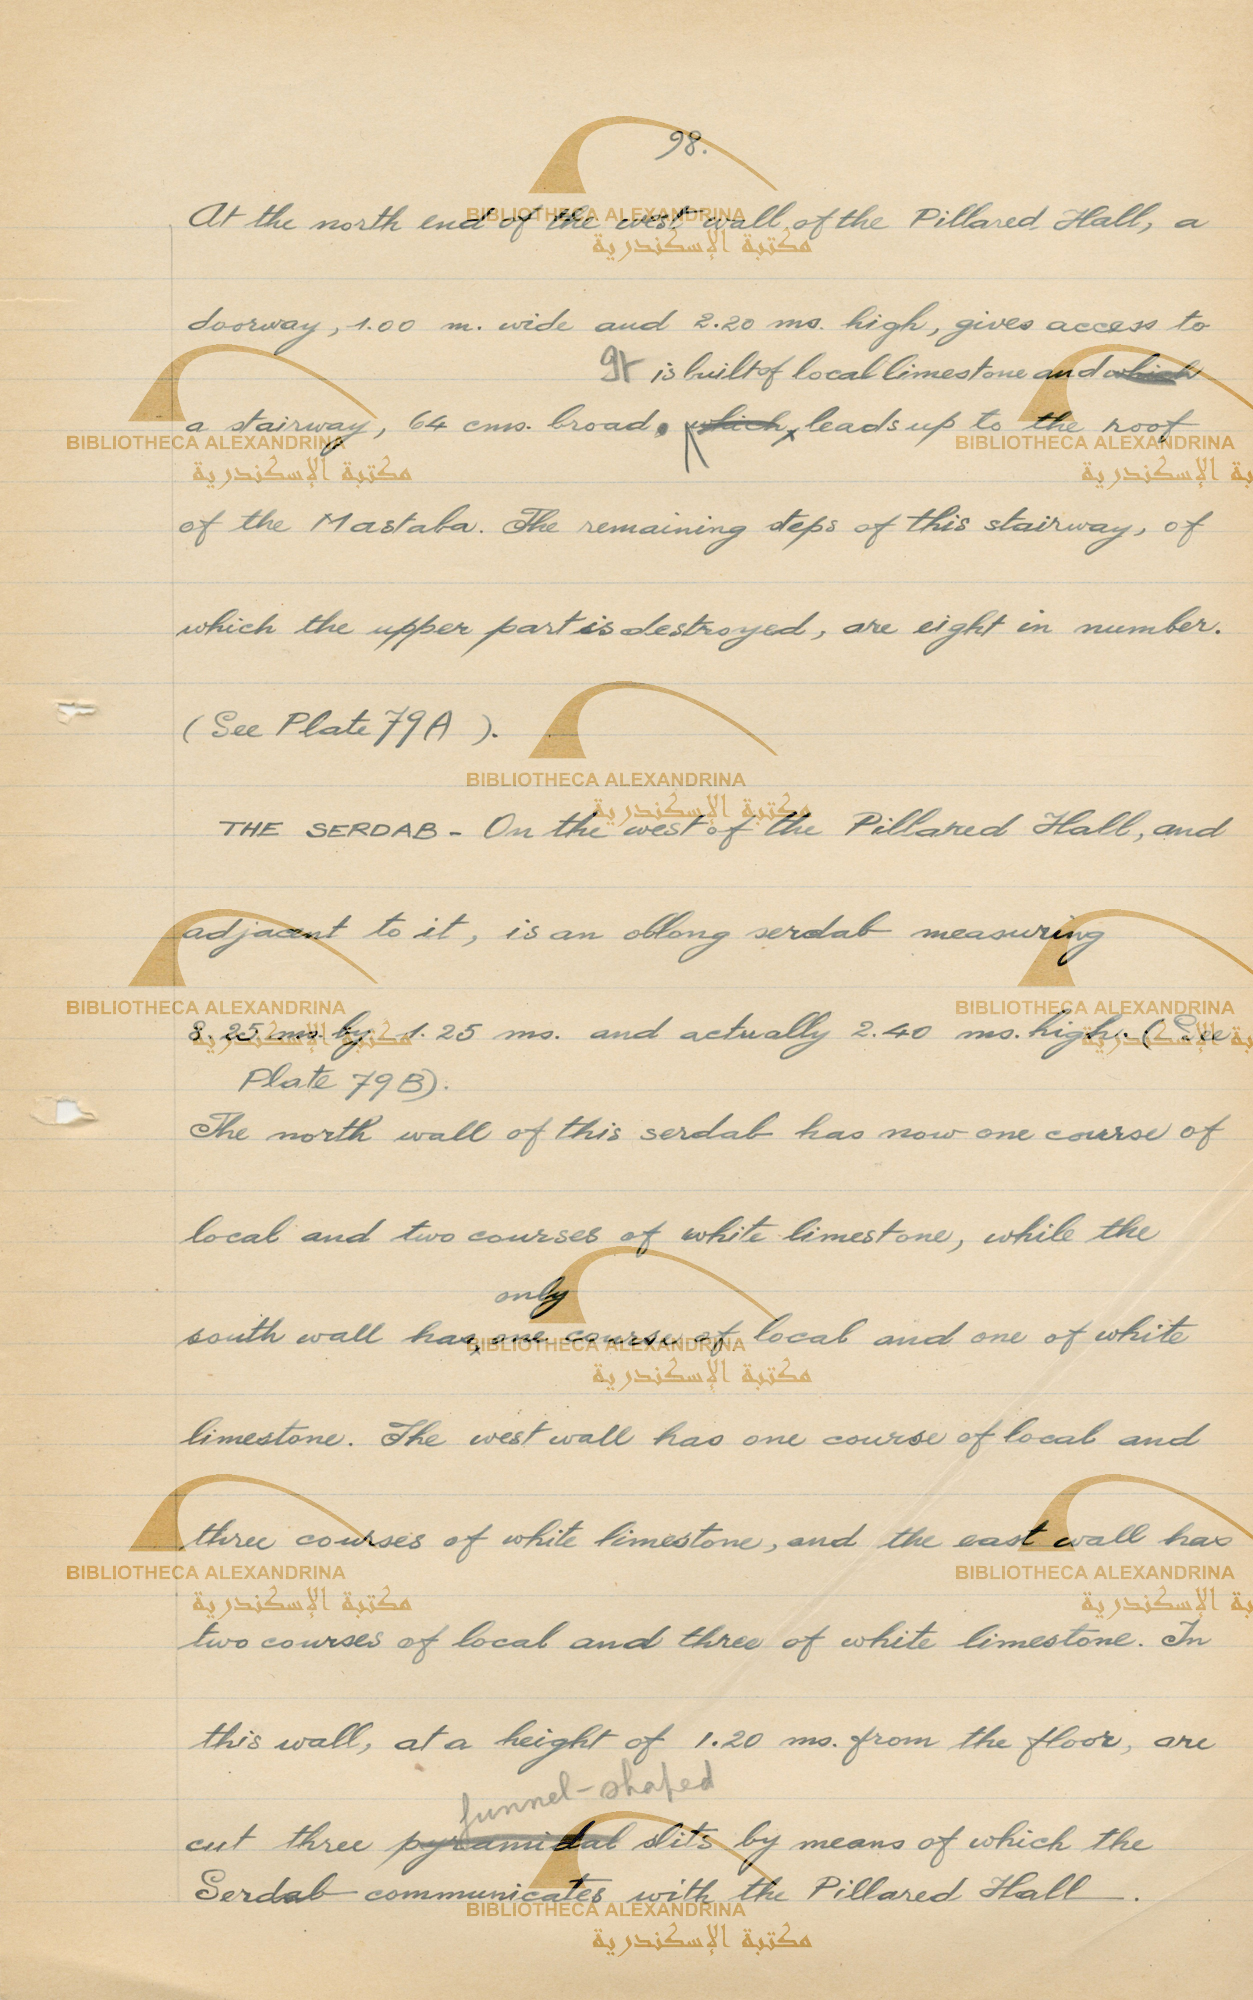 98.
At the north end of the west wall of the Pillared Hall, a
doorway, 1.00 m. wide and 2.20 ms. high, gives access to
It is built of local limestone and which
a stairway, 64 cms. broad. which leads up to the roof
of the Mastaba. The remaining steps of this stairway, of
which the upper part is destroyed, are eight in number.
(See Plate 79A ).
THE SERDAB - On the west of the Pillared Hall, and
adjacent to it, is an oblong serdab measuring
8.25 ms. by 1.25 ms. and actually 2.40 ms. high. (See
Plate 79B).
The north wall of this serdab has now one course of
local and two courses of white limestone, while the
only
south wall has one course of local and one of white
limestone. The west wall has one course of local and
three courses of white limestone, and the east wall has
two courses of local and three of white limestone. In
this wall, at a height of 1.20 ms. from the floor, are
funnel-shaped
cut three pyramidal slits by means of which the
Serdab communicates with the Pillared Hall.
BIBLIOTHECA ALEXANDRINA
مكتبة الإسكندرية